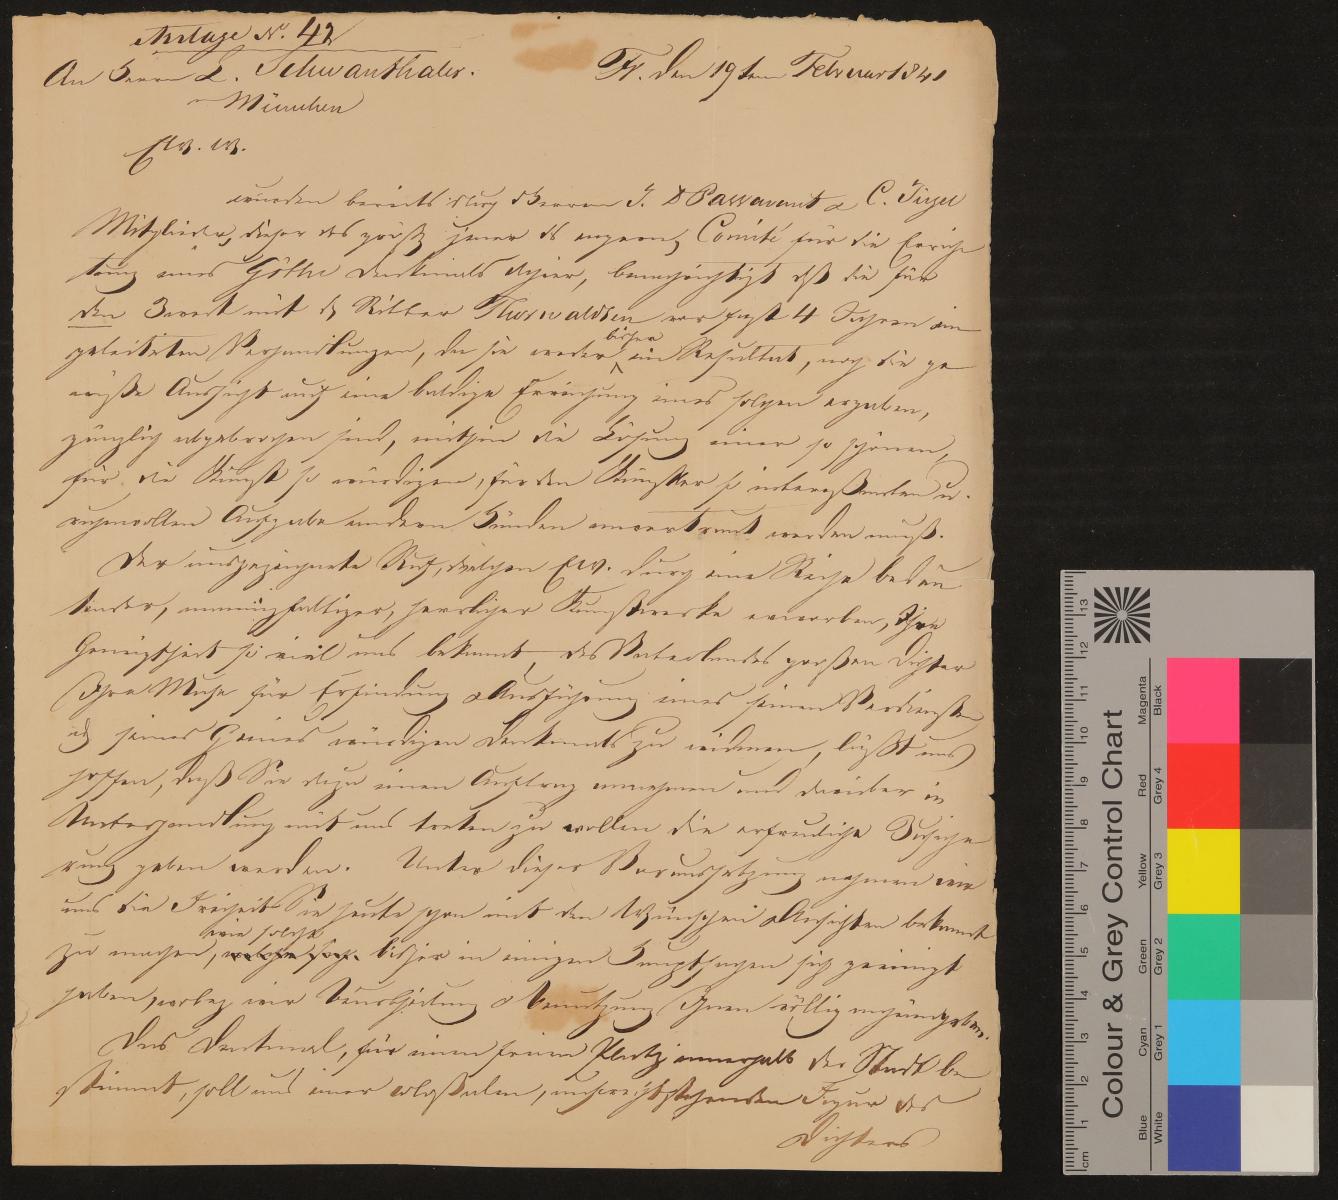 Anlage No. 42
An Herrn L. Schwanthaler. Fr. den 19ten Februar 1841
München
Ew. w.
wurden bereits durch Herren J. D Passavant & C. Jügel
Mitglieder, dieser des jener des Comité für die Errich
tung eines Göthe Denkmals dahier, benachrichtigt daß die für
den Zweck mit d Ritter Thorwaldsen vor fast 4 Jahren ein
geleiteten Verhandlungen, da sie weder bisher ein Resultat, noch die ge
wiße Aussicht auf eine baldige Erreichung eines solchen ergaben,
gänzlich abgebrochen sind, mithin die Lösung einer so schönen,
für die Kunst so würdigen, für den Künstler so interessanten u.
ruhmvollen Aufgabe andern Händen anvertraut werden muß.
Der ausgezeichnete Ruf, welchen Ew. durch eine Reihe bedeu
tender, mannigfaltiger, herrlicher Kunstwerke erworben, Ihre
Geneigtheit so viel uns bekannt, des Vaterlandes großen Dichter
Ihre Muse für Erfindung & Ausführung eines seiner Verdienste
& seines Genies würdigen Denkmals zu widmen, läßt uns
hoffen, daß Sie dazu einen Auftrag annehmen und darüber in
Unterhandlung mit uns treten zu wollen die erfreuliche Zusiche
rung geben werden. Unter dieser Voraussetzung nehmen wir
uns die Freiheit Sie heute schon mit den Wünschen & Ansichten bekannt
zu machen, wie solche bisher in einigen Hauptsachen sich geeinigt
haben, wobey wir Beurtheilung & Benutzung Ihnen völlig anheimgeben.
Das Denkmal, für einen freien Platz innerhalb der Stadt be
stimmt, soll aus einer colossalen, aufrechtstehenden Figur des
Dichters